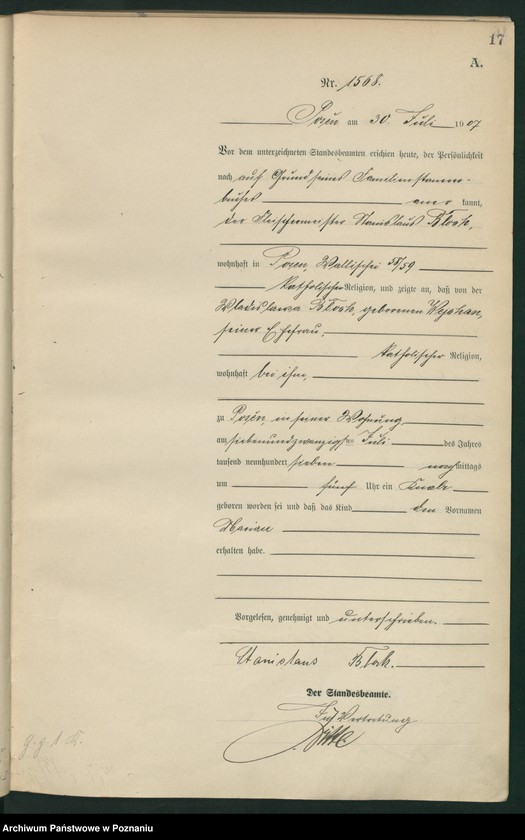 17
A.
Nr. 1568.
Posen am 30. Juli 1907
Vor dem unterzeichneten Standesbeamten erschien heute, der Persönlichkeit
nach auf Grund seines Familienstamm-
buches anerkannt,
der Fleischermeister Stanislaus Block,
wohnhaft in Posen, Wallischei 58/59
katholischer Religion, und zeigte an, daß von der
Wladislawa Block, geborenen
seiner Ehefrau,
katholischer Religion,
wohnhaft bei ihm,
zu Posen, in seiner Wohnung
am siebenundzwanzigsten Juli des Jahres
tausend neunhundert sieben nachmittags
um fünf Uhr ein Knabe
geboren worden sei und daß das Kind den Vornamen
Marian
erhalten habe.
Vorgelesen, genehmigt und unterschrieben.
Stanislaus Block.
Der Standesbeamte.
In Vertretung
Archiwum Państwowe w Poznaniu